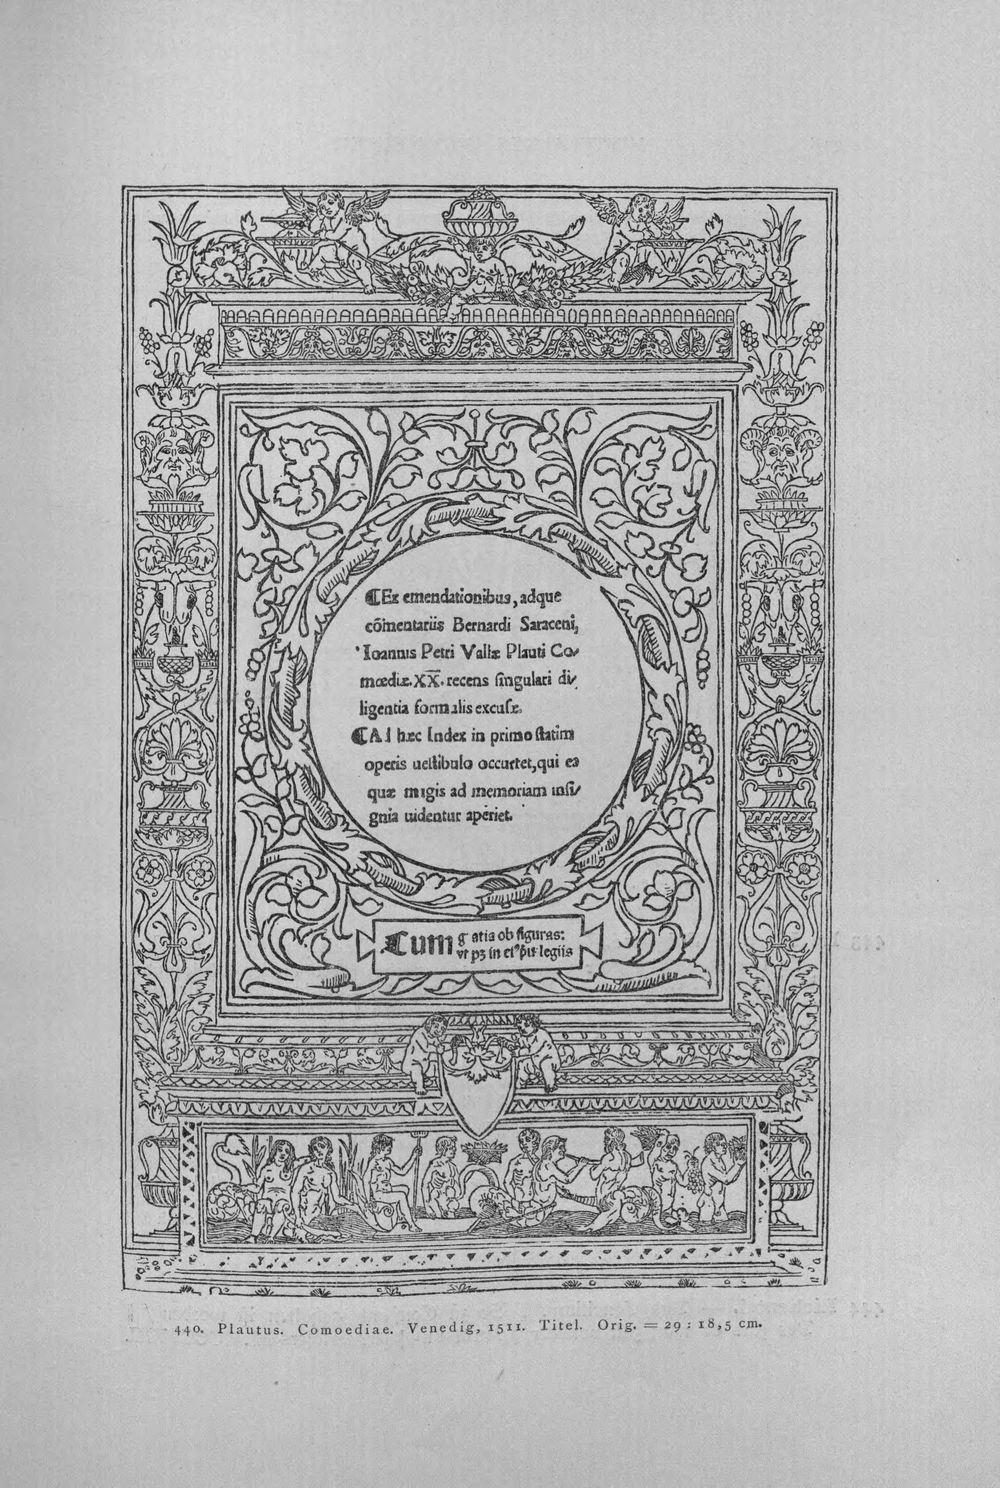 ⁋Ex emendationibus, adque
cōmentariis Bernardi Saraceni,
Ioannis Petri Vallæ Plauti Co⸗
mœdiæ.XX. recens ſingulari di⸗
ligentia formalis excuſæ.
⁋Ad hæc Index in primo ſtatim
operis ueſtibulo occurret, qui ea
quæ magis ad memoriam inſi⸗
gnia uidentur aperiet.
Cum gratia ob figuras:
vt pʒ in legiis
440. Plautus. Comoediae. Venedig, 1511. Titel. Orig. = 29 : 18,5 cm.